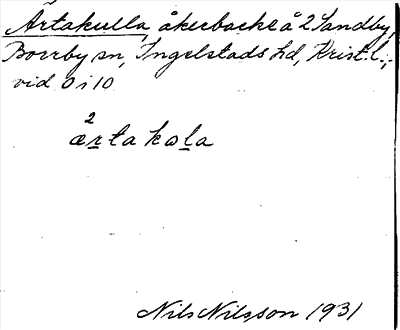 Ärtakulla, åkerbacke å 2 Sandby,
Borrby sn, Ingelstads hd, Krist. l.;
vid 0 i 10
2
ærta kωla
Nils Nilsson 1931